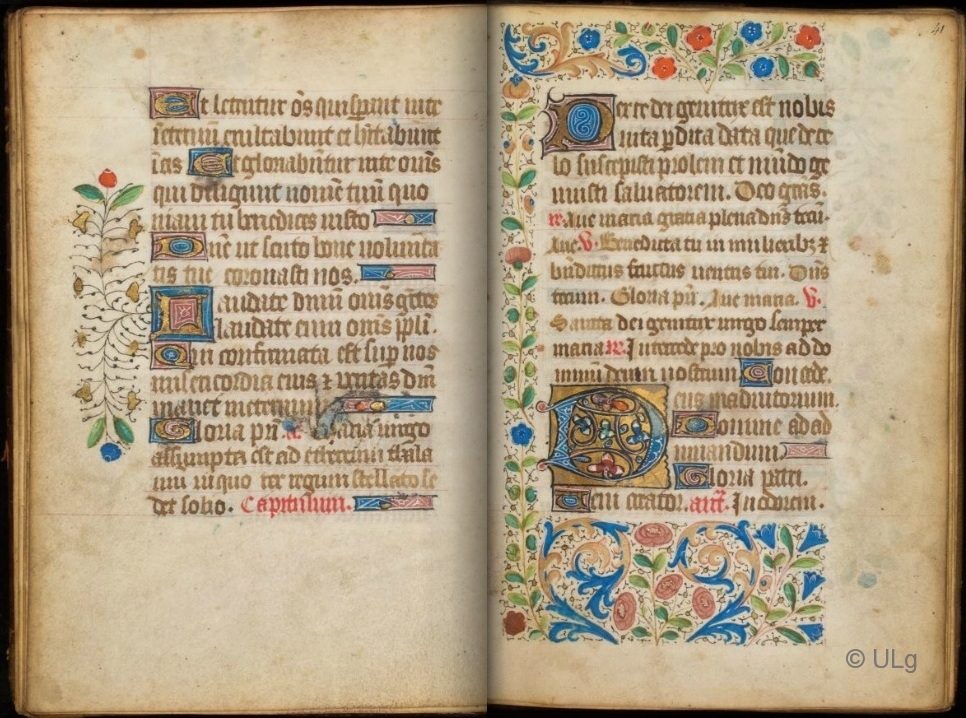 Et letentur oēs qui sperant in te
in eternū exultabunt et hītabunt
in eis Et gloriabūntur in te om̄s
qui diligunt nomē tuū quo
niam tu benedices iusto
Dn̄e ut scuto bone volunta
tis tue coronasti nos.
Laudate dnm̄ om̄s gētes
laudate eum om̄s ppl̄i.
Qn̄ confirmata est sup nos
misericordia eius ⁊ veritas dn̄i
manet in eternum
Gloria pr̄i. a. Maria virgo
assumpta est ad ethereum thala
mū in quo rex regum stellato se
det solio. Capitulum.
41
Per te dei genitrix est nobis
vita pdita data que de ce
lo suscepisti prolem et mūdo ge
nuisti salvatorem. Deo gr̄as.
R. Ave maria gratia plena dn̄s tecū.
Ave. V. Benedicta tu in mulieribz ⁊
bn̄dictus fructus ventris tui. Dn̄s
tecum. Gloria pr̄i. Ave maria. V.
Sancta dei genitrix virgo semper
maria R. Intercede pro nobis ad do
minū deum nostrum Concede.
Deus in adiutorium.
Domine ad ad
iuvandum
Gloria patri.
Veni creator. anā. In odorem.
© ULg